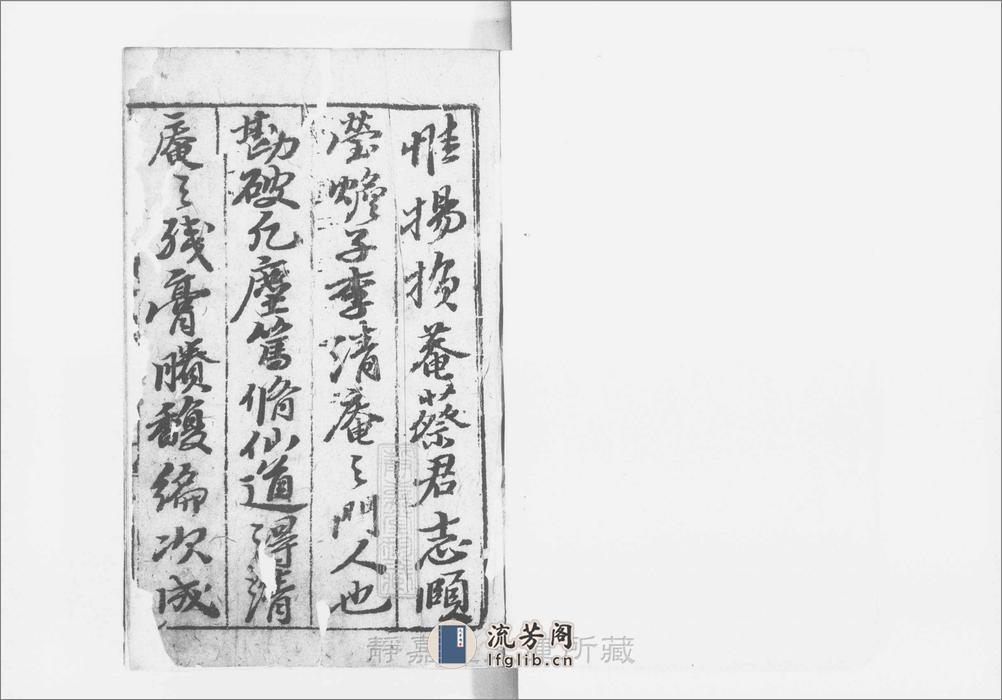 惟揚損菴蔡君志頤
瑩蟾子李清庵之門人也
勘破凡塵篤脩仙道得清
庵之殘膏賸馥編次成
靜嘉堂文庫所藏
流芳阁
lfglib.cn